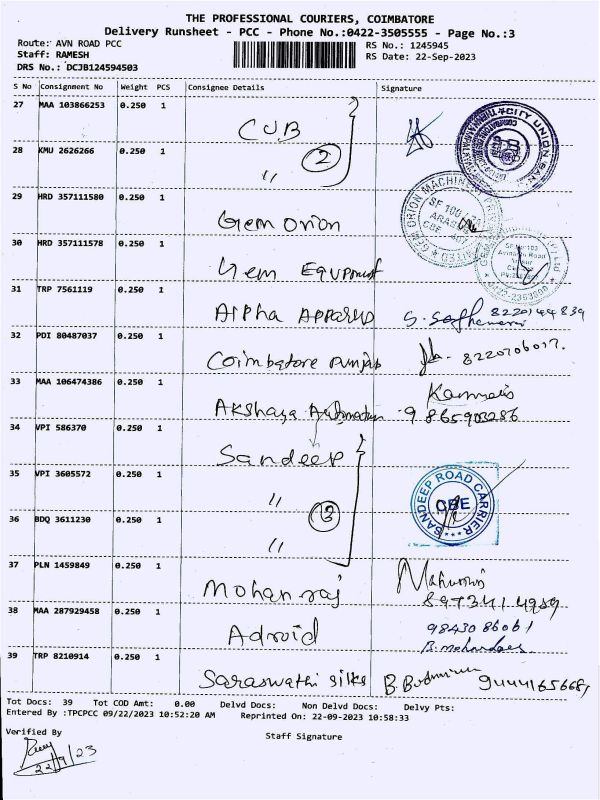 THE PROFESSIONAL COURIERS, COIMBATORE
Delivery Runsheet - PCC - Phone No.:0422-3505555 - Page No.:3
Route: AVN ROAD PCC
RS No.: 1245945
Staff: RAMESH
RS Date: 22-Sep-2023
DRS No.: DCJB124594503
S No Consignment No Weight PCS Consignee Details Signature
27 MAA 103866253 0.250 1 CUB
28 KMU 2626266 0.250 1 " 2
29 HRD 357111580 0.250 1 Gem Orion
30 HRD 357111578 0.250 1 Gem Equpment
31 TRP 7561119 0.250 1 Alpha Apparels 8220144839
32 PDI 80487037 0.250 1 Coimbatore punjab 8220706017.
33 MAA 106474386 0.250 1 Akshaya 9865903286
34 VPI 586370 0.250 1 Sandeep
35 VPI 3605572 0.250 1 "
SANDEEP ROAD CARRIER
CBE
36 BDQ 3611230 0.250 1 " 3
37 PLN 1459849 0.250 1 Mohan raj
38 MAA 287929458 0.250 1 Adroid 9843086061
39 TRP 8210914 0.250 1 Saraswathi silks
Tot Docs: 39 Tot COD Amt: 0.00 Delvd Docs: Non Delvd Docs: Delvy Pts:
Entered By :TPCPCC 09/22/2023 10:52:20 AM Reprinted On: 22-09-2023 10:58:33
Verified By
Staff Signature
22/9/23